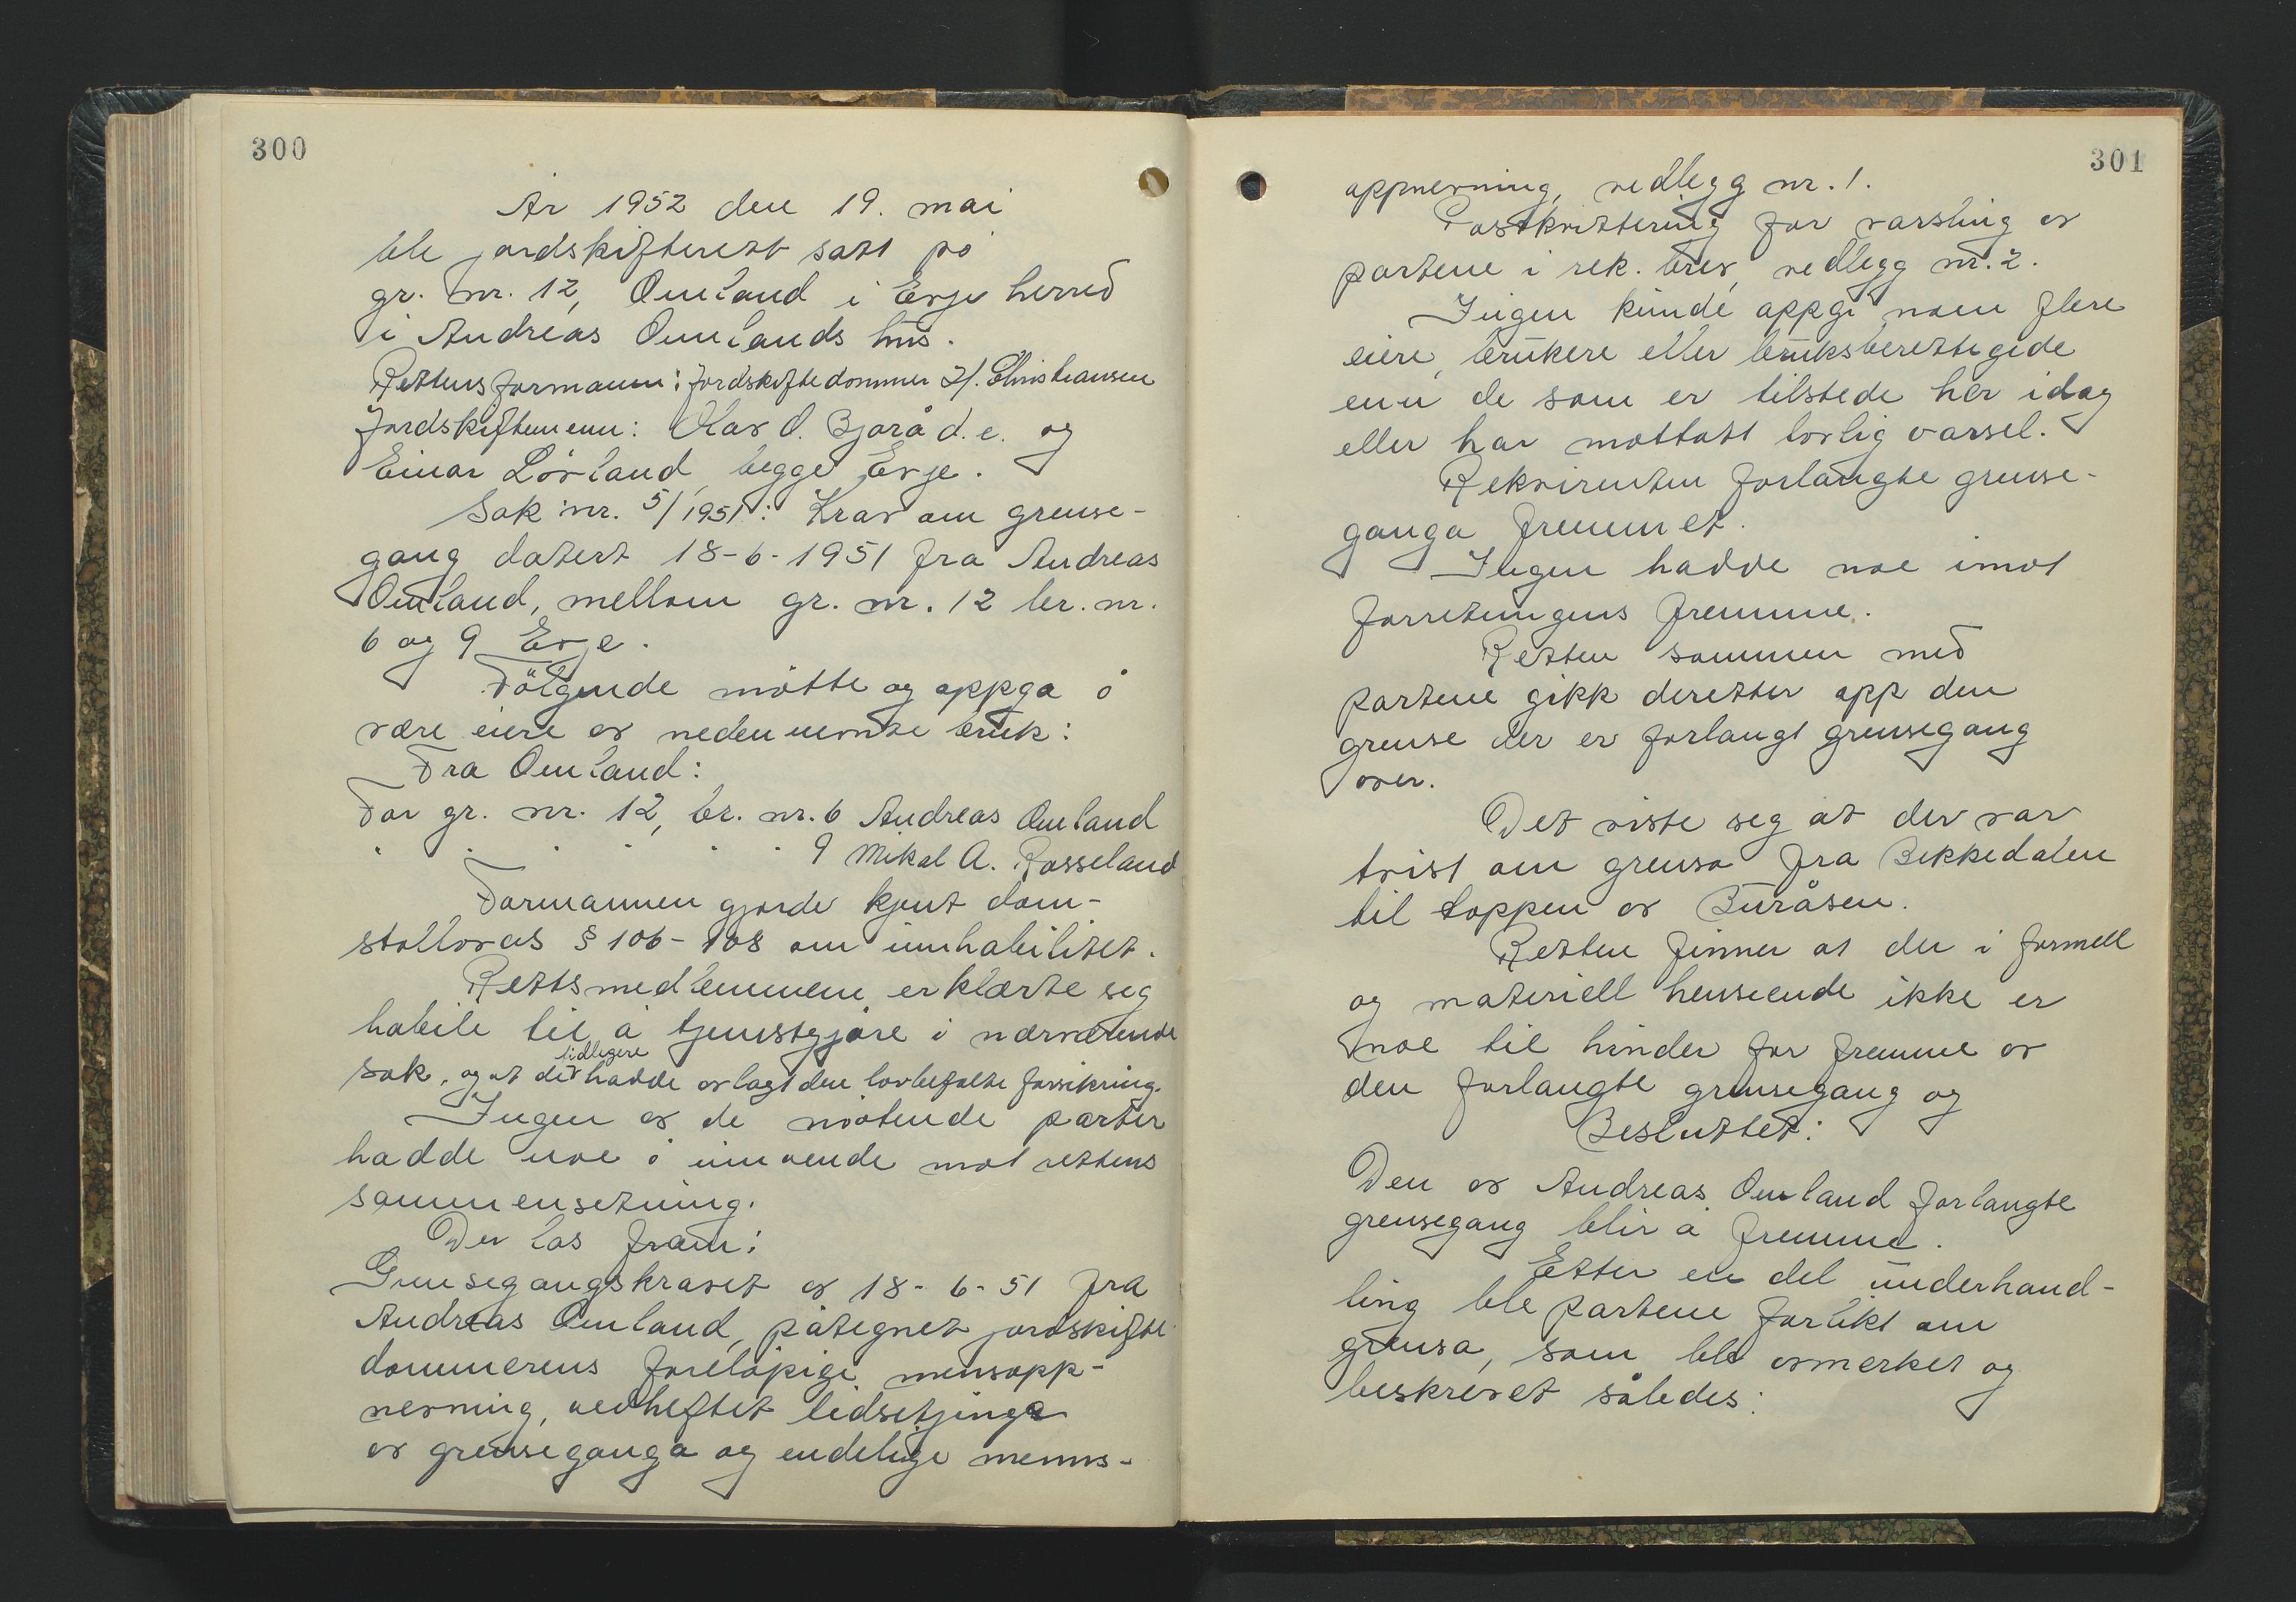 300
År 1952 den 19. mai
ble jordskifterett satt på
gr. nr. 12, Omland i Evje herred
i Andreas Omlands hus.
Rettens formann: Jordskiftedommer H. Christiansen
Jordskiftemenn: Olav O. Bjorå d.e. og
Einar Lövland, begge Evje.
Sak nr. 5/1951: Krav om grense-
gang datert 18-6-1951 fra Andreas
Omland, mellom gr. nr. 12 br. nr.
6 og 9 Evje.
Følgende møtte og oppga å
være eiere av nedennevnte bruk:
Fra Omland:
For gr. nr. 12, br. nr. 6 Andreas Omland
" " " " " " 9 Mikal A. Rosseland
Formannen gjorde kjent dom-
stollovas § 106-108 om innhabilitet.
Rettsmedlemmene erklærte seg
habile til å tjenstgjøre i nærværende
sak, og at de tidligere hadde avlagt den lovbefalte forsikring.
Ingen av de møtende parter
hadde noe å innvende mot rettens
sammensetning.
Der las fram:
Grensegangskravet av 18-6-51 fra
Andreas Omland, påtegnet jordskifte-
dommerens foreløpige mennsopp-
nevning, vedheftet lidsetjinga
av grenseganga og endelige menns-
301
oppnevning, vedlegg nr. 1.
Postkvittering for varsling av
partene i rek. brev, vedlegg nr. 2.
Ingen kunde oppgi noen flere
eiere, brukere eller bruksberettigede
enn de som er tilstede her idag
eller har mottatt lovlig varsel.
Rekvirenten forlangte grense-
ganga fremmet.
Ingen hadde noe imot
forretningens fremme.
Retten sammen med
partene gikk deretter opp den
grense der er forlangt grensegang
over.
Det viste seg at der var
tvist om grensa fra Bekkedalen
til toppen av Buråsen.
Retten finner at der i formell
og materiell henseende ikke er
noe til hinder for fremme av
den forlangte grensegang og
Besluttet:
Den av Andreas Omland forlangte
grensegang blir å fremme.
Etter en del underhand-
ling ble partene forlikt om
grensa, som ble avmerket og
beskrevet således: